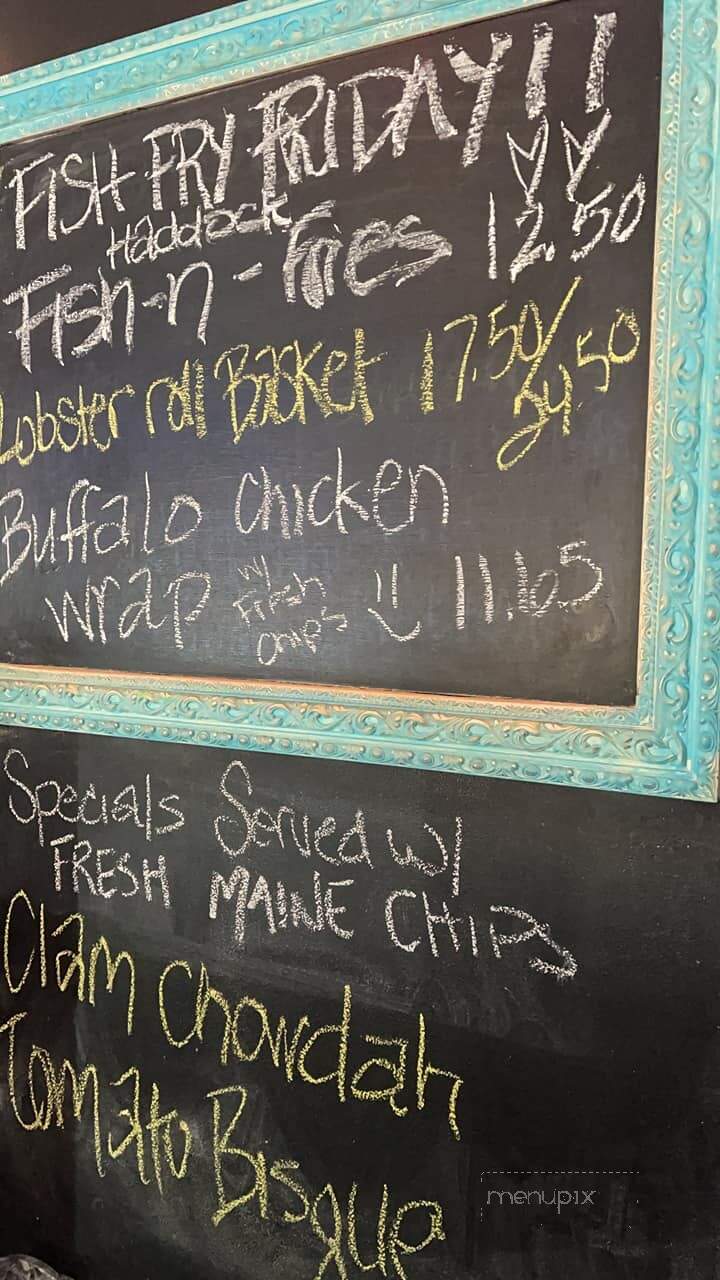 FISH FRY FRIDAY!!
Haddock
Fish-n-Fries 12.50
Lobster roll Basket 17.50/
24.50
Buffalo chicken
wrap w/ Fresh chips 11.65
Specials Served w/
FRESH MAINE CHIPS
Clam Chowdah
Tomato Bisque
menupix